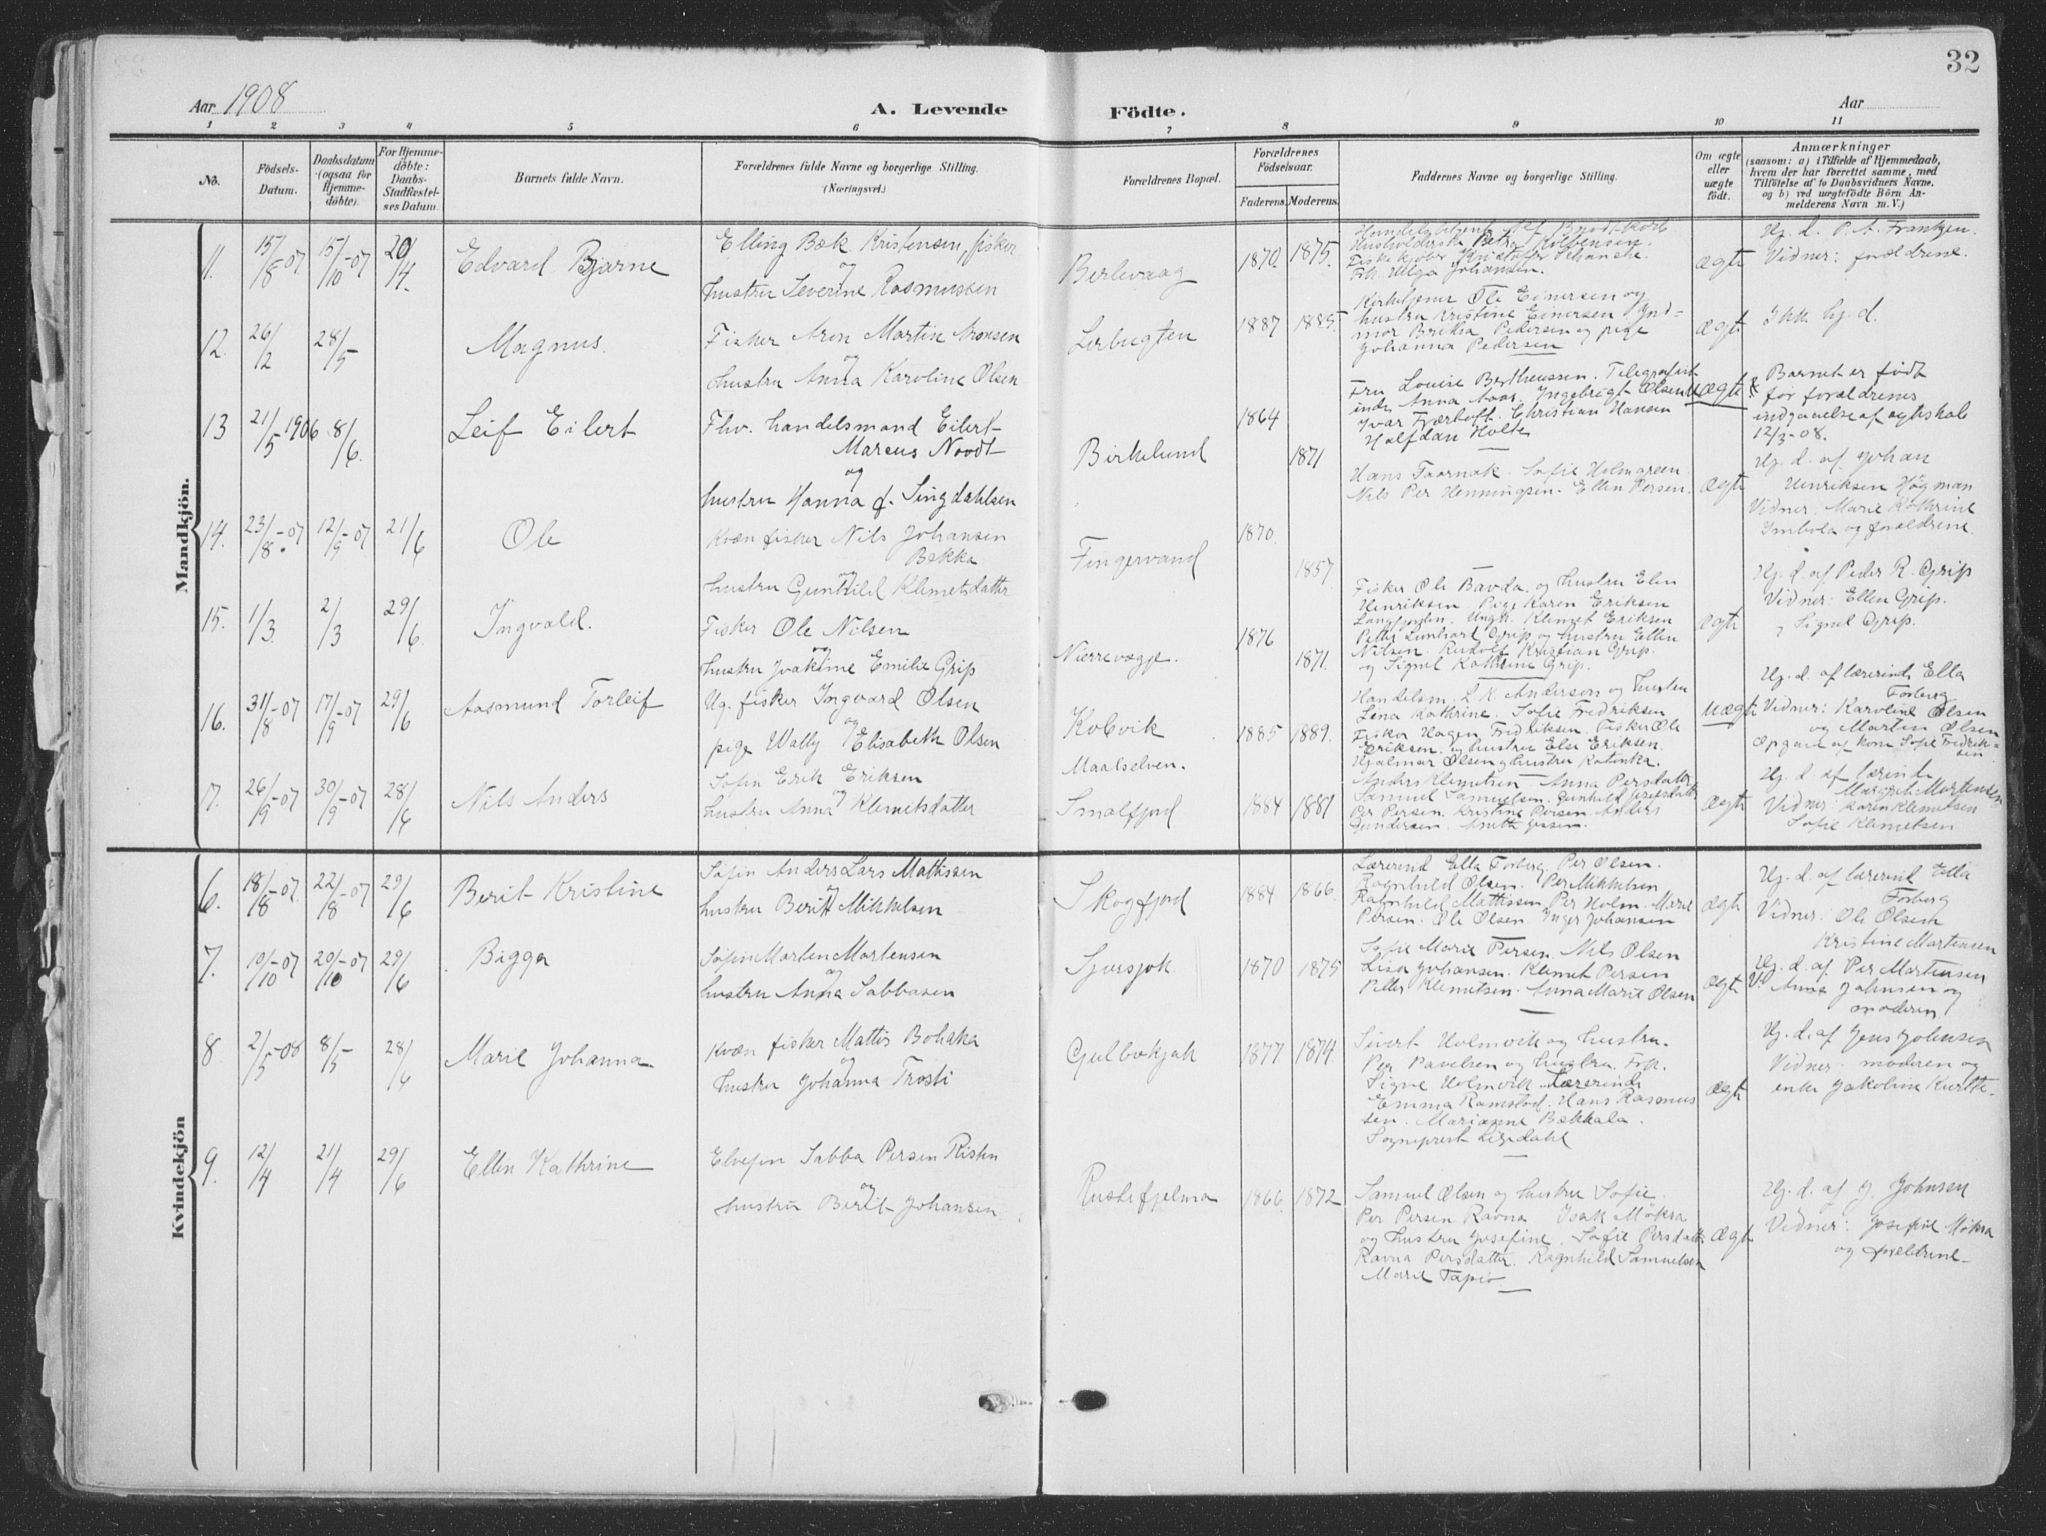 32
Aar 1908
A. Levende Födte.
Aar
1 2 3 4 5 6 7 8 9 10 11
No.
Födsels-Datum.
Daabsdatum (ogsaa for Hjemme-döbte).
For Hjemme-döbte: Daabs-Stadfæstel-ses Datum.
Barnets fulde Navn.
Forældrenes fulde Navne og borgerlige Stilling.
(Næringsvei.)
Forældrenes Bopæl.
Forældrenes Födselsaar.
Faderens. Moderens.
Faddernes Navne og borgerlige Stilling.
Om ægte eller uægte födt.
Anmærkninger
(saasom: a) i Tilfælde af Hjemmedaab,
hvem der har forrettet samme, med
Tilföielse af to Daabsvidners Navne,
og b) ved uægtefödte Börn An-
melderens Navn m. V.)
Mandkjön.
11. 15/8-07 15/10-07 20/4 Edvard Bjarne
Elling Bæk Kristensen, fisker
og
hustru Severine Rasmussen
Berlevaag 1870 1875
Husholderske Petra Kolbensen.
Fiskekjøber Kristofer Schanche
Frk. Helga Johansen.
ægte
Hj. d. P. A. Frantzen.
Vidner: forældrene.
12. 26/2 28/5 Magnus
Fisker Aron Martin Aronsen
og
hustru Anna Karoline Olsen
Lerbugten 1887 1885
Kirketjener Ole Einersen og
hustru Kristine Einersen Jord-
mor Brita Pedersen og pige
Johanna Pedersen
ægte
Ikk. hj. d.
13 21/5 1906 8/6. Leif Eilert
Fhv. handelsmand Eilert
Marcus Nordt
og
hustru Hanna f. Singdahlsen
Birkelund 1864 1871
Fru Louise Bertheussen. Telegrafist
inde Anna Aas. Ingebrigt Olsen
Ivar Tverhoft. Christian Hansen
Halfdan Holte
uægte
Barnet er født
før forældrenes
indgaaelse af egteskab
12/3-08.
14. 23/8-07 12/9-07 21/6 Ole
Kvæn fisker Nils Johansen
Bekka
og
hustru Gunhild Klemetsdatter
Fingervand 1870. 1857
Hans Taornak. Sofie Holmgreen
Nils Per Henningsen. Ellen Persen.
ægte
Hj. d. af Johan
Henriksen Högman
Vidner: Marie Kathrine
Imbola og forældrene
15. 1/3. 2/3 29/6. Ingvald.
Fisker Ole Nilsen
og
hustru Joakime Emilie Grip
Nierrevægje. 1876 1871.
Fisker Ole Bavda og hustru Elen
Henriksen Pige Karen Eriksen
Langfjorden. Ungk. Klemet Eriksen
Peter Lenhart Grip og hustru Ellen
Nilsen. Rudolf Kristian Grip.
og Signel Kathrine Grip.
ægte
Hj. d. af Peder R. Grip
Vidner: Ellen Grip.
Signel Grip.
16. 31/8-07 17/9-07 29/6 Aasmund Torleif
Ug. fisker Ingvard Olsen
og
pige Wally Elisabeth Olsen
Kolvik
Maalselven.
1885 1889.
Handelsm. L. K. Anderson og hustru
Lina Kathrine. Sofie Fredriksen
Fisker Hagen Fredriksen. Fisker Ole
Eriksen og hustru Else Eriksen.
Hjalmar Olsen og hustru Katinka.
uægte
Hj. d. af lærerinde Ella
Forberg
Vidner: Karoline Olsen
og Martin Olsen
Opgave af kone Sofie Fredrik-
sen
17. 26/9-07 30/9-07 28/6 Nils Anders
Søfin Erik Eriksen
og
hustru Anna Klemetsdatter
Smalfjord 1884 1881
Anders Klemetsen. Anna Persdatter
Samuel Samuelsen. Gunhild
Per Persen. Kristine Persen. Anders
Gundersen.
ægte
Hj. d. af lærinde
Margrete Mortensen
Vidner: Karen Klemetsen
Sofie Klemetsen
Kvindekjön
6. 18/8-07. 22/8-07 29/6 Berit Kristine
Søfin Anders Lars Mathisen
og
hustru Berit Mikkelsen
Skogfjord 1884 1866
Lærerind Ella Forberg Per Olsen.
Ragnhild Olsen. Per Mikkelsen
Ragnhild Mathisen Per Holm. Marie
Persen. Ole Olsen. Inger Johansen
ægte
Hj. d. af lærerind Ella
Forberg
Vidner: Ole Olsen
Kristine Mortensen
7. 10/10-07 20/10-07 29/6 Bigga
Søfin Morten Mortensen
og
hustru Anna Sabbasen
Sjursjok 1870 1875
Sofie Marie Persen. Nils Olsen
Lisa Johansen. Klemet Persen
Petter Klemetsen. Anna Marie Olsen
ægte
Hj. d. af Per Mortensen
V. Anna Johnsen og
moderen
8. 2/5-08 8/5 28/6 Marie Johanna
Kvæn fisker Mattis Bohaka
og
hustru Johanna Trosti
Gulbokjok 1877 1874
Sivert Holmvik og hustru.
Per Pavelsen og hustru. Frk.
Signe Holmvik. Lærerinde
Emma Ramstad. Hans Rasmus
sen. Marianne Bekkala.
Sogneprest Ligedahl
ægte
Hj. d. af Jens Johnsen
Vidner: moderen og
enke Jakoline Kurtte.
9. 12/4 21/4 29/6 Ellen Kathrine
Elvefin Sabba Persen Risten
og
hustru Berit Johansen
Rustefjelma 1866 1872
Samuel Olsen og hustru Sofie.
Per Persen Ravna Isak Møksa
og hustru Josefine. Sofie Persdatter
Ravna Persdatter. Ragnhild Samuelsen
Marie Tapio
ægte
Hj. d. af J. Johnsen
Vidner: Josefine Møksa
og forældrene